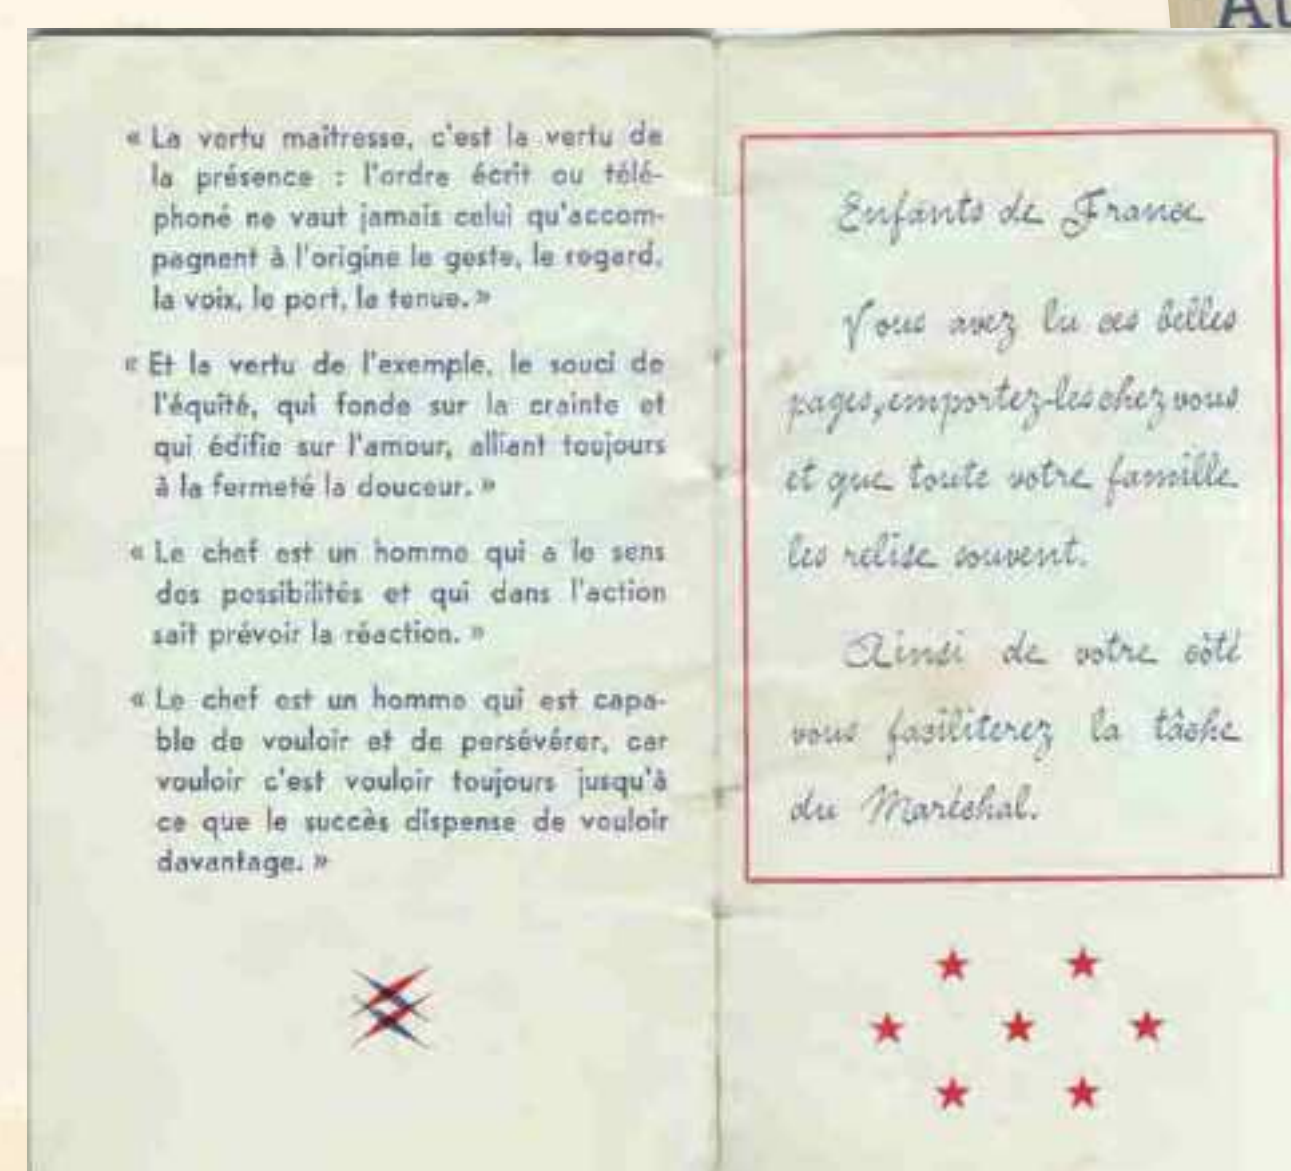 Au
« La vertu maîtresse, c'est la vertu de
la présence : l'ordre écrit ou télé-
phoné ne vaut jamais celui qu'accom-
pagnent à l'origine le geste, le regard,
la voix, le port, la tenue. »
« Et la vertu de l'exemple, le souci de
l'équité, qui fonde sur la crainte et
qui édifie sur l'amour, alliant toujours
à la fermeté la douceur. »
« Le chef est un homme qui a le sens
des possibilités et qui dans l'action
sait prévoir la réaction. »
« Le chef est un homme qui est capa-
ble de vouloir et de persévérer, car
vouloir c'est vouloir toujours jusqu'à
ce que le succès dispense de vouloir
davantage. »
Enfants de France
Vous avez lu ces belles
pages, emportez-les chez vous
et que toute votre famille
les relise souvent.
Ainsi de votre côté
vous faciliterez la tâche
du Maréchal.